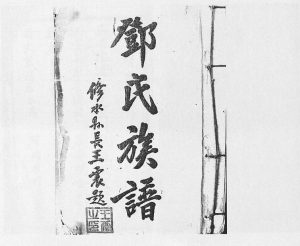 鄧氏族譜
修水縣長王震題